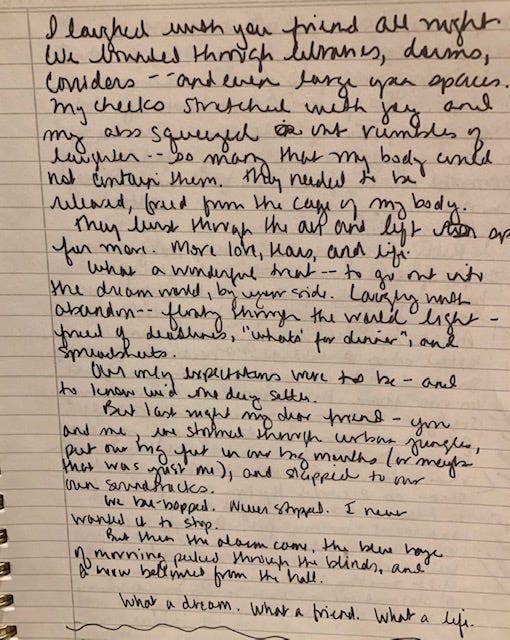 I laughed with you friend all night
We bounded through libraries, dorms,
corridors -- and even large open spaces.
My cheeks stretched with joy and
my abs squeezed out rumbles of
laughter -- so many that my body could
not contain them. They needed to be
released, freed from the cage of my body.
They burst through the air and left
for more. More love, tears, and life.
What a wonderful treat -- to go out into
the dream world, by your side. Laughing with
abandon -- floating through the world light -
freed of deadlines, "whats' for dinner", and
spreadsheets.
Our only expectations were to be - and
to know we'd one day settle.
But last night my dear friend - you
and me, we stormed through urban jungles,
put our big feet in our big mouths (or maybe
that was just me), and skipped to our
own soundtracks.
We be-bopped. Never stopped. I never
wanted it to stop.
But then the alarm came, the blue haze
of morning peeked through the blinds, and
a meow bellowed from the hall.
What a dream. What a friend. What a life.